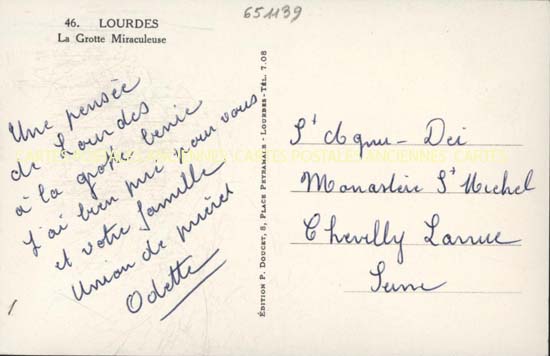 46. LOURDES
La Grotte Miraculeuse
651139
Une pensée
de Lourdes
à la grotte benie
J'ai bien prié pour vous
et votre famille
Union de prières
Odette
ÉDITION P. DOUCET, 8, PLACE PEYRAMALE - LOURDES-TÉL. 7.08
St Agnu-Dei
Monastère St Michel
Chevilly Larrue
Seine
CARTES POSTALES ANCIENNES CARTES POSTALES ANCIENNES CARTES